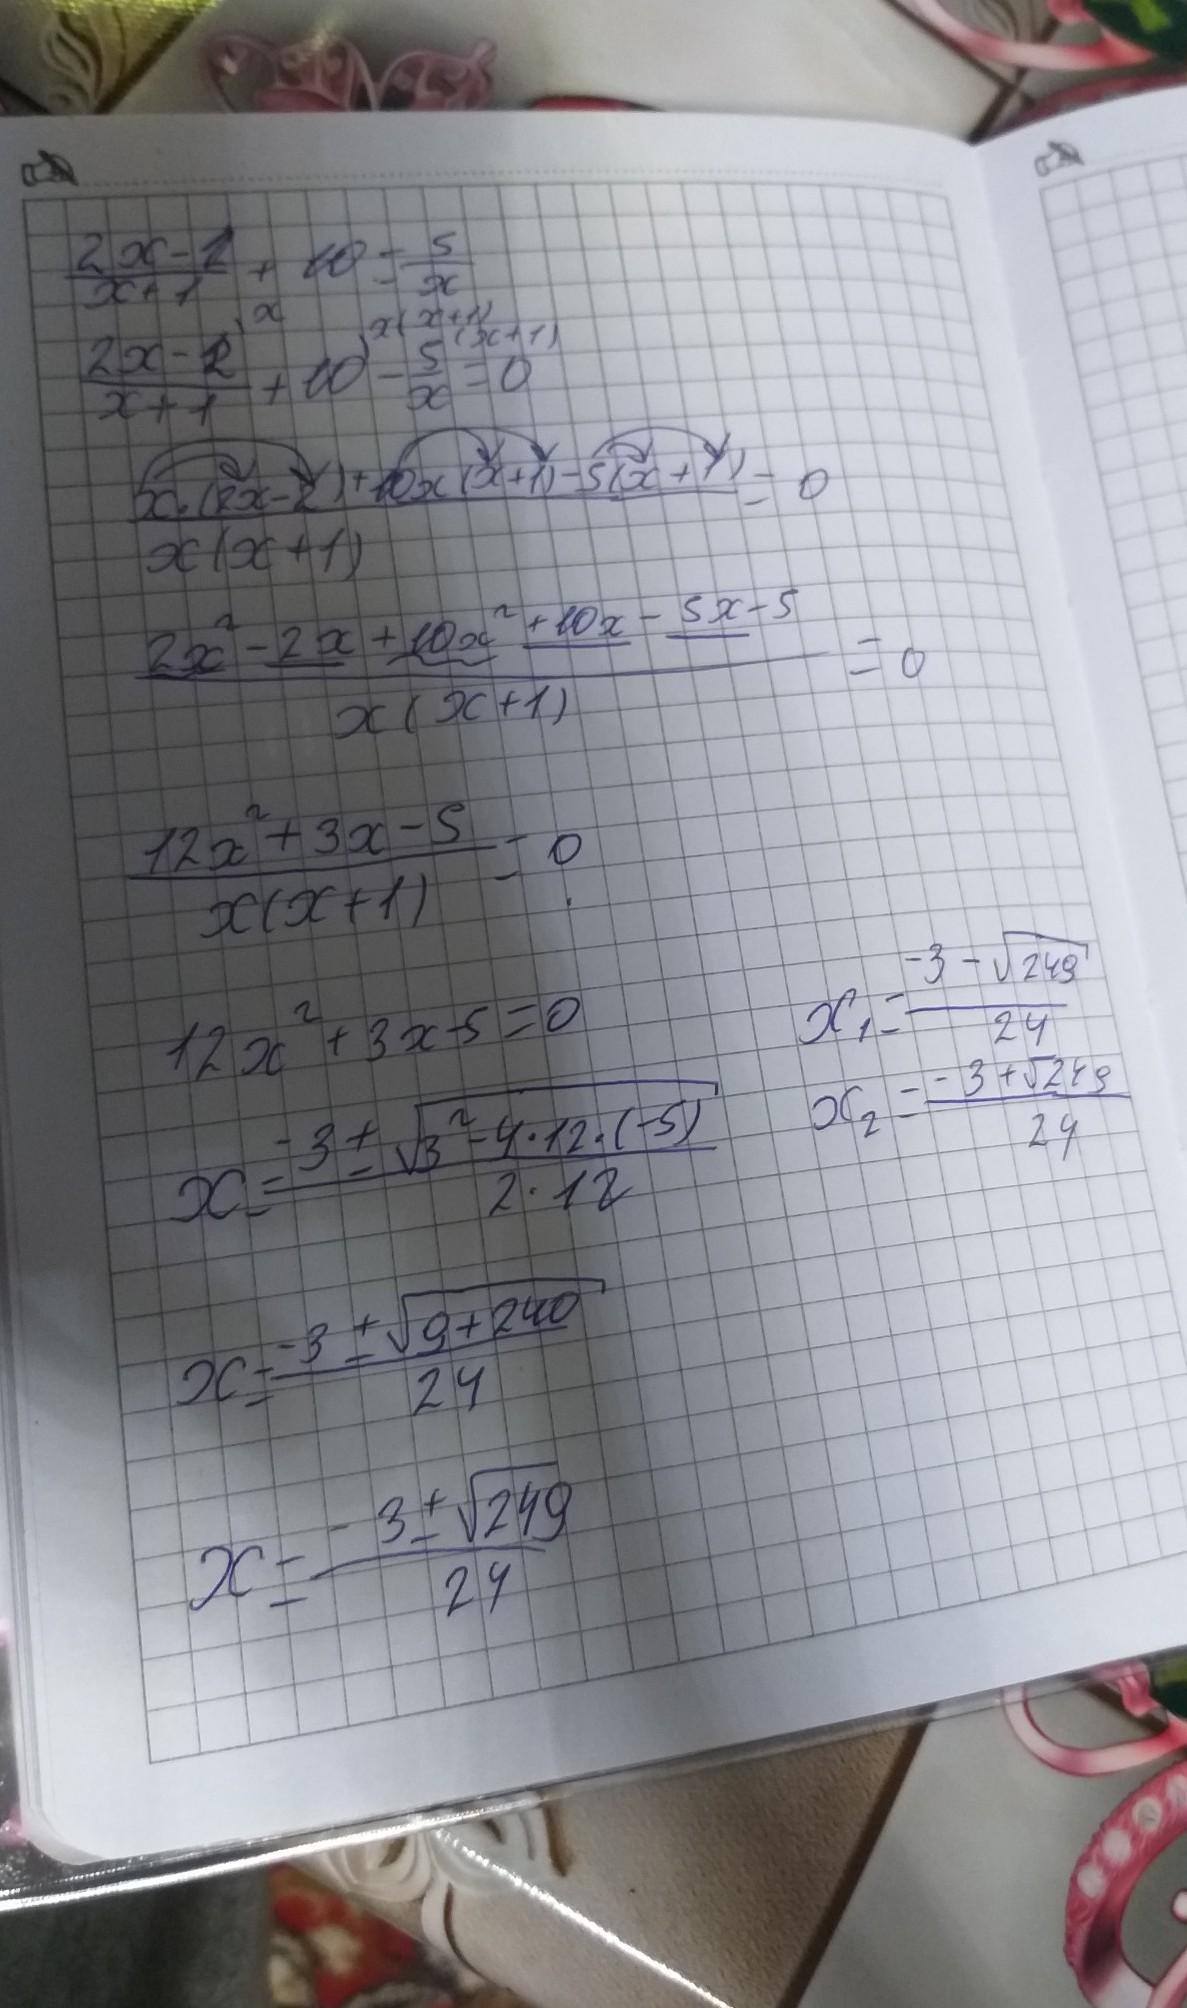 (2x-2)/(x+1) + 10 = 5/x
(2x-2)/(x+1) ·x + 10 ·x(x+1) - 5/x (x+1) = 0
(x·(2x-2)+10x(x+1)-5(x+1))/(x(x+1)) = 0
(2x²-2x+10x²+10x-5x-5)/(x(x+1)) = 0
(12x²+3x-5)/(x(x+1)) = 0
12x²+3x-5=0
x=(-3±√(3²-4·12·(-5)))/(2·12)
x=(-3±√(9+240))/24
x=(-3±√249)/24
x₁=(-3-√249)/24
x₂=(-3+√249)/24